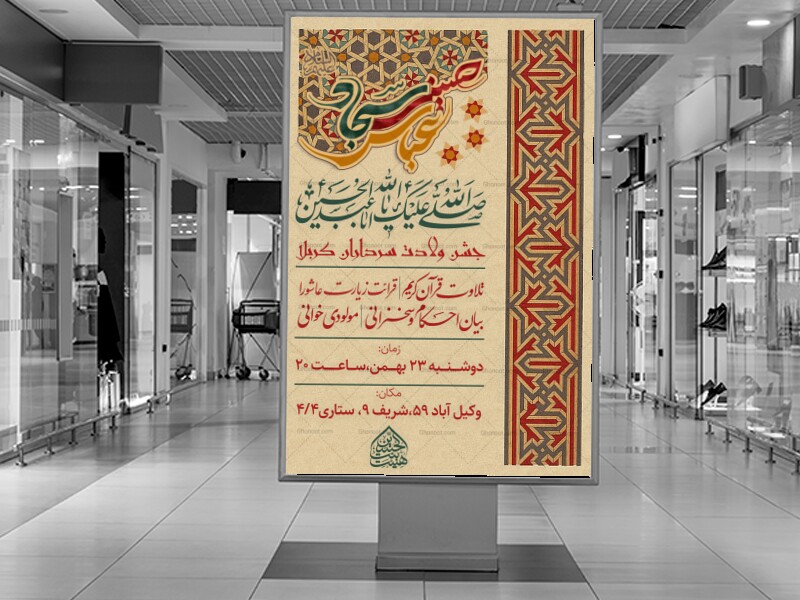 حسین سجاد
عباس
صلی الله علیک یا اباعبدالله الحسین
جشن ولادت سرداران کربلا
تلاوت قرآن کریم | قرائت زیارت عاشورا
بیان احکام و سخنرانی | مولودی خوانی
زمان:
دوشنبه ۲۳ بهمن،ساعت ۲۰
مکان:
وکیل آباد ۵۹،شریف ۹، ستاری۴/۴